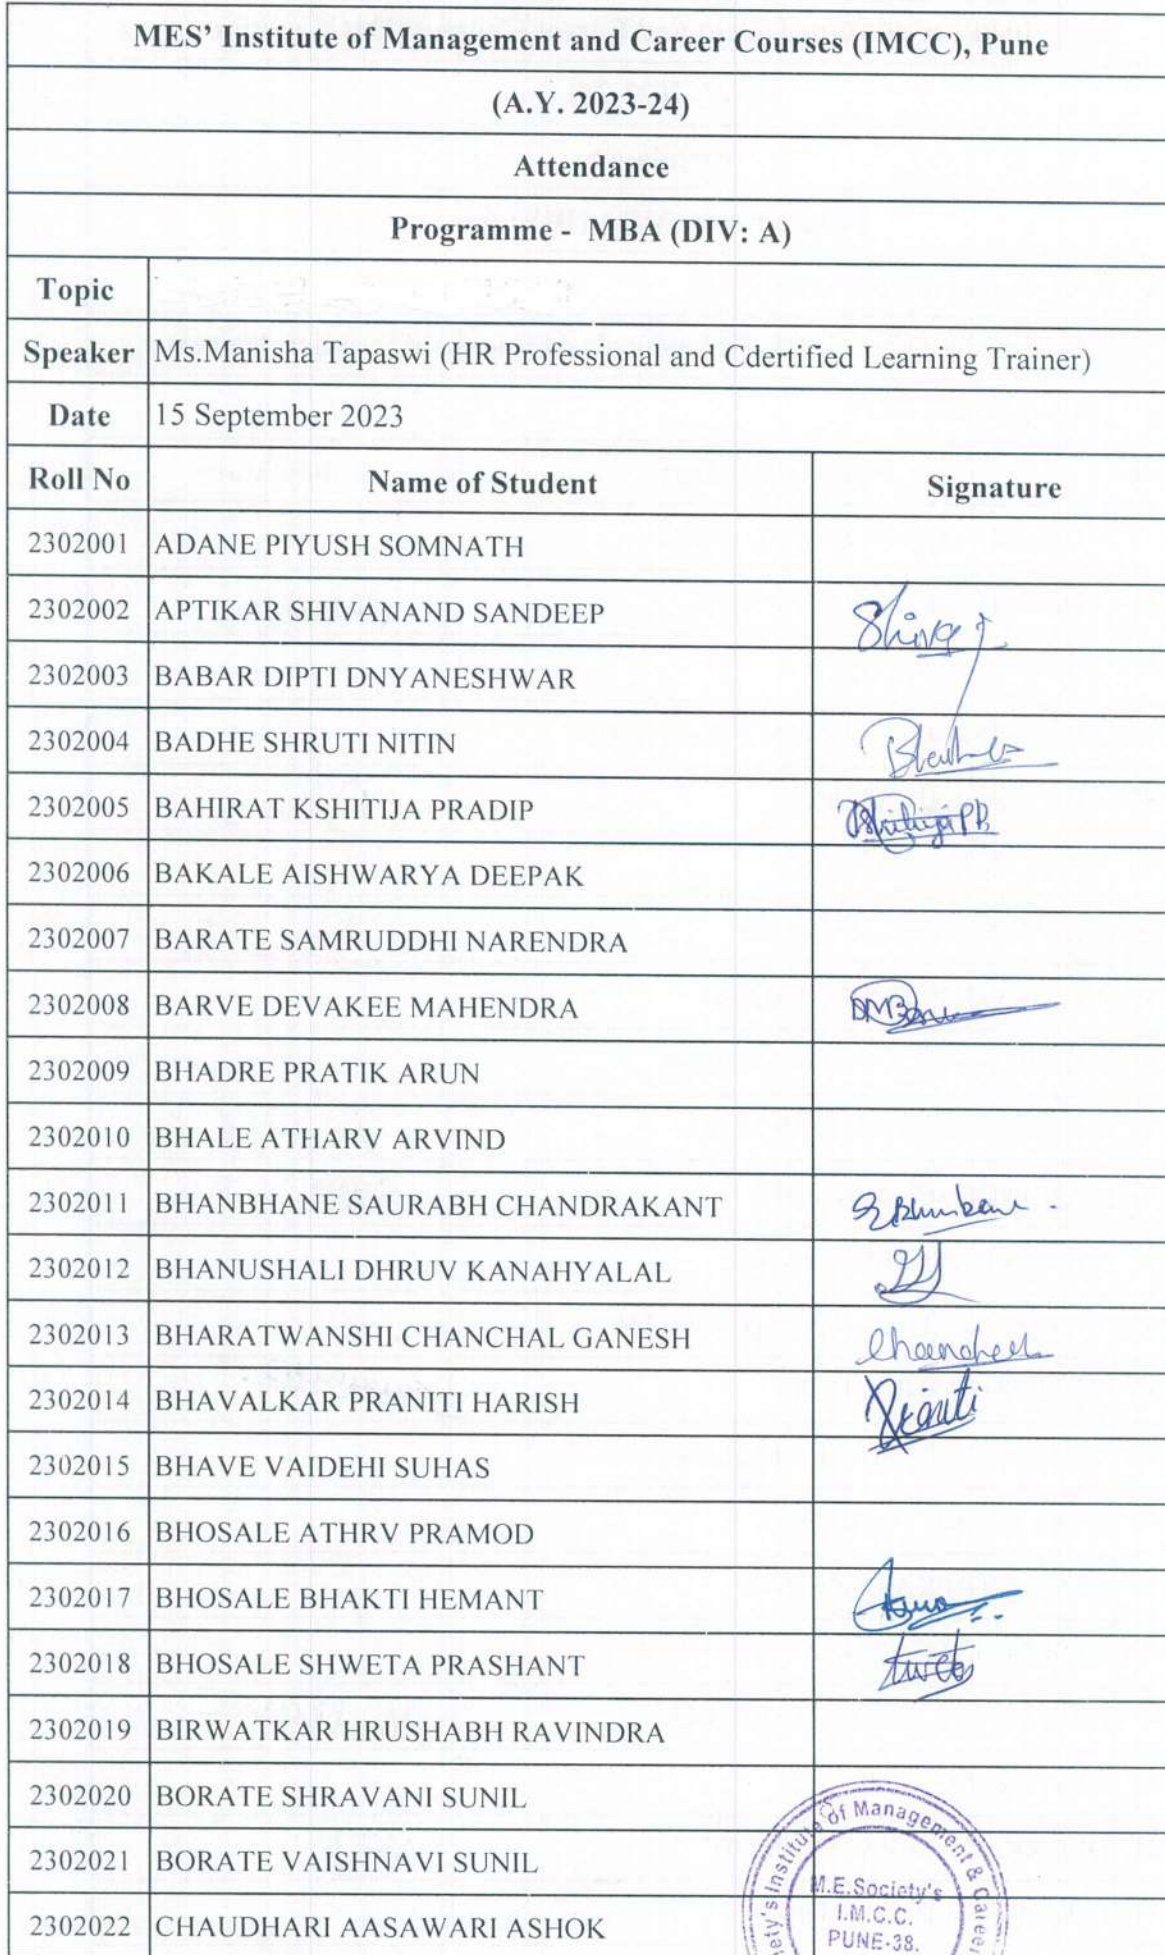 MES' Institute of Management and Career Courses (IMCC), Pune
(A.Y. 2023-24)
Attendance
Programme - MBA (DIV: A)
Topic
Speaker Ms.Manisha Tapaswi (HR Professional and Cdertified Learning Trainer)
Date 15 September 2023
Roll No Name of Student Signature
2302001 ADANE PIYUSH SOMNATH
2302002 APTIKAR SHIVANAND SANDEEP
2302003 BABAR DIPTI DNYANESHWAR
2302004 BADHE SHRUTI NITIN
2302005 BAHIRAT KSHITIJA PRADIP
2302006 BAKALE AISHWARYA DEEPAK
2302007 BARATE SAMRUDDHI NARENDRA
2302008 BARVE DEVAKEE MAHENDRA
2302009 BHADRE PRATIK ARUN
2302010 BHALE ATHARV ARVIND
2302011 BHANBHANE SAURABH CHANDRAKANT
2302012 BHANUSHALI DHRUV KANAHYALAL
2302013 BHARATWANSHI CHANCHAL GANESH
2302014 BHAVALKAR PRANITI HARISH Praniti
2302015 BHAVE VAIDEHI SUHAS
2302016 BHOSALE ATHRV PRAMOD
2302017 BHOSALE BHAKTI HEMANT
2302018 BHOSALE SHWETA PRASHANT
2302019 BIRWATKAR HRUSHABH RAVINDRA
2302020 BORATE SHRAVANI SUNIL
2302021 BORATE VAISHNAVI SUNIL
2302022 CHAUDHARI AASAWARI ASHOK
Institute of Management & Career
M.E.Society's
I.M.C.C.
PUNE-38.